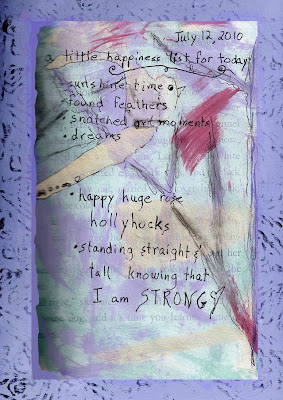 July 12, 2010
a little happiness list for today
• sunshine time
• found feathers
• snatched art moments
• dreams
• happy huge rose
hollyhocks
• standing straight &
tall knowing that
I am STRONG